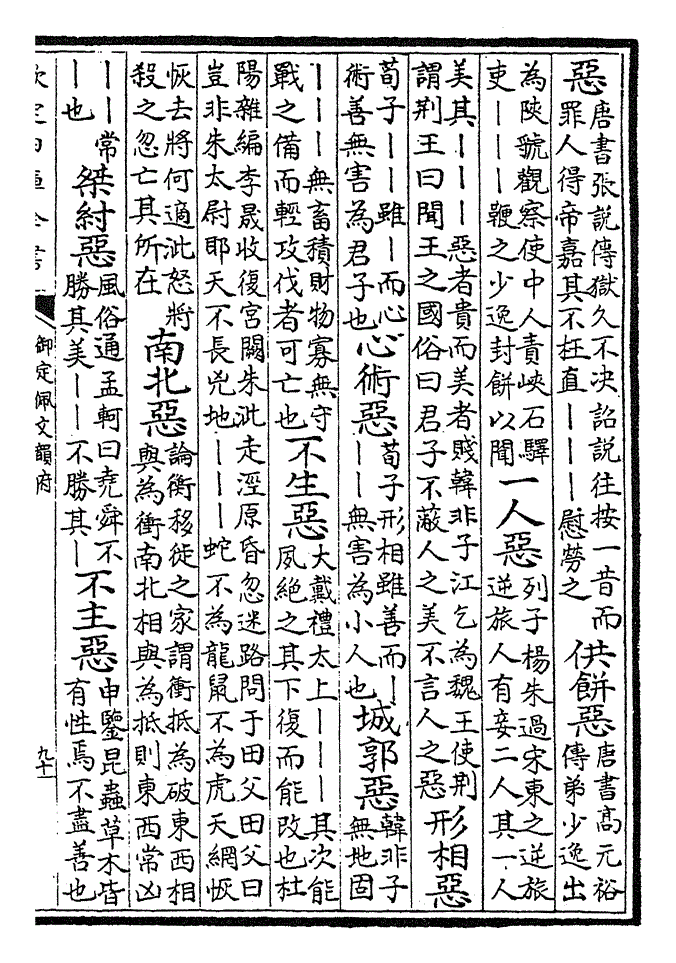 惡
唐書張說傳獄久不决詔說往按一昔而
罪人得帝嘉其不枉直｜｜｜慰勞之
供餅惡
唐書髙元裕
傳弟少逸出
為陝虢觀察使中人責峽石驛
吏｜｜｜鞭之少逸封餅以聞
一人惡
列子楊朱過宋東之逆旅
逆旅人有妾二人其一人
美其｜｜｜惡者貴而美者賤韓非子江乞為魏王使荆
謂荆王曰聞王之國俗曰君子不蔽人之美不言人之惡
形相惡
荀子｜｜雖｜而心
術善無害為君子也
心術惡
荀子形相雖善而｜
｜｜無害為小人也
城郭惡
韓非子
無地固
｜｜｜無畜積財物寡無守
戰之備而輕攻伐者可亡也
不生惡
大戴禮太上｜｜｜其次能
夙絶之其下復而能改也杜
陽雜編李晟收復宮闕朱泚走涇原昏忽迷路問于田父田父曰
豈非朱太尉耶天不長兇地｜｜｜蛇不為龍鼠不為虎天網恢
恢去將何適泚怒將
殺之忽亡其所在
南北惡
論衡移徙之家謂衝抵為破東西相
與為衝南北相與為抵則東西常凶
｜｜常
｜也
桀紂惡
風俗通孟軻曰堯舜不
勝其美｜｜不勝其｜
不主惡
申鑒昆蟲草木皆
有性焉不盡善也
欽定四庫全書
御定佩文韻府
九十